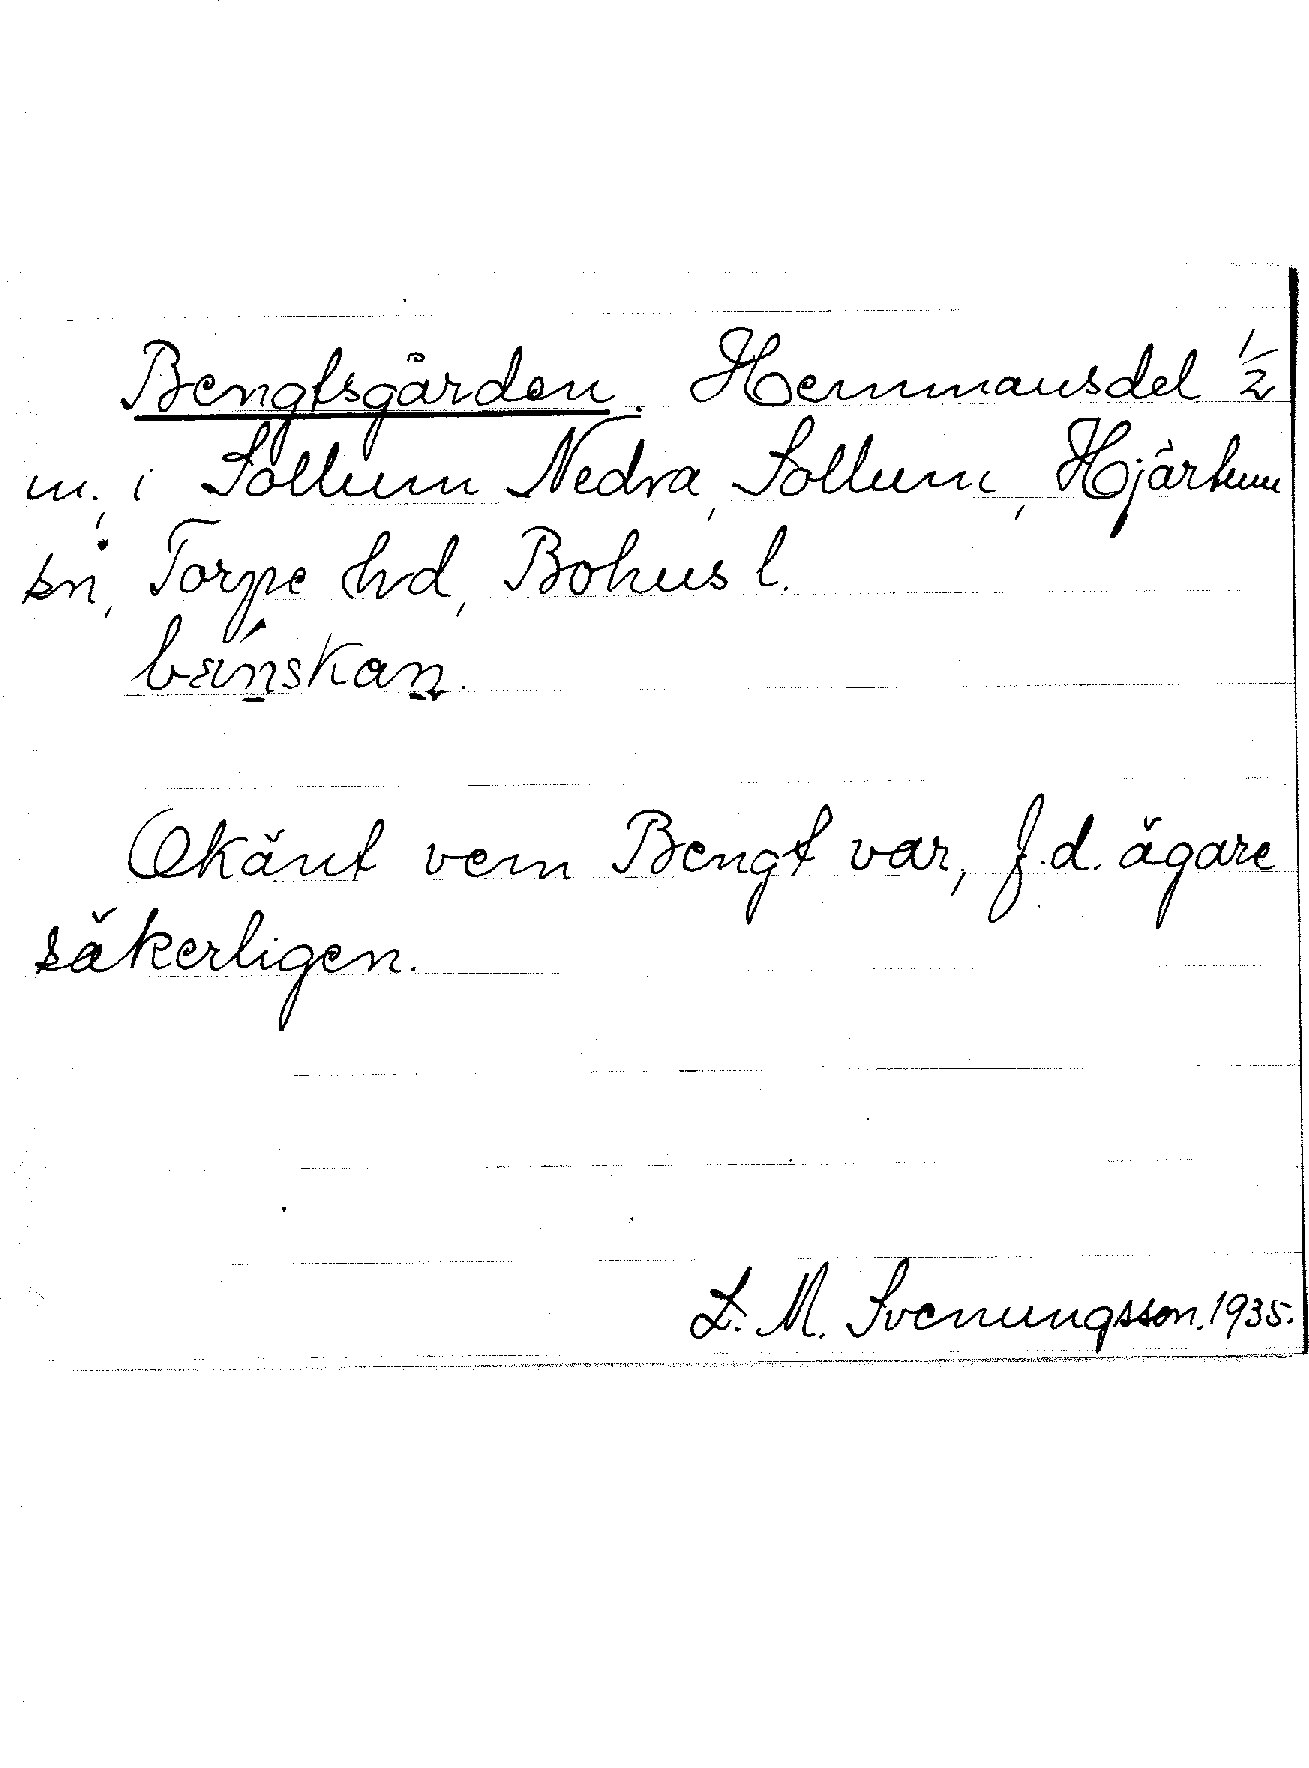 Bengtsgården. Hemmansdel 1/2
m., i Sollum Nedra, Sollum, Hjärtum
sn, Torpe hd, Bohus l.
Okänt vem Bengt var, f.d. ägare
säkerligen.
L. M. Svenungsson. 1935.